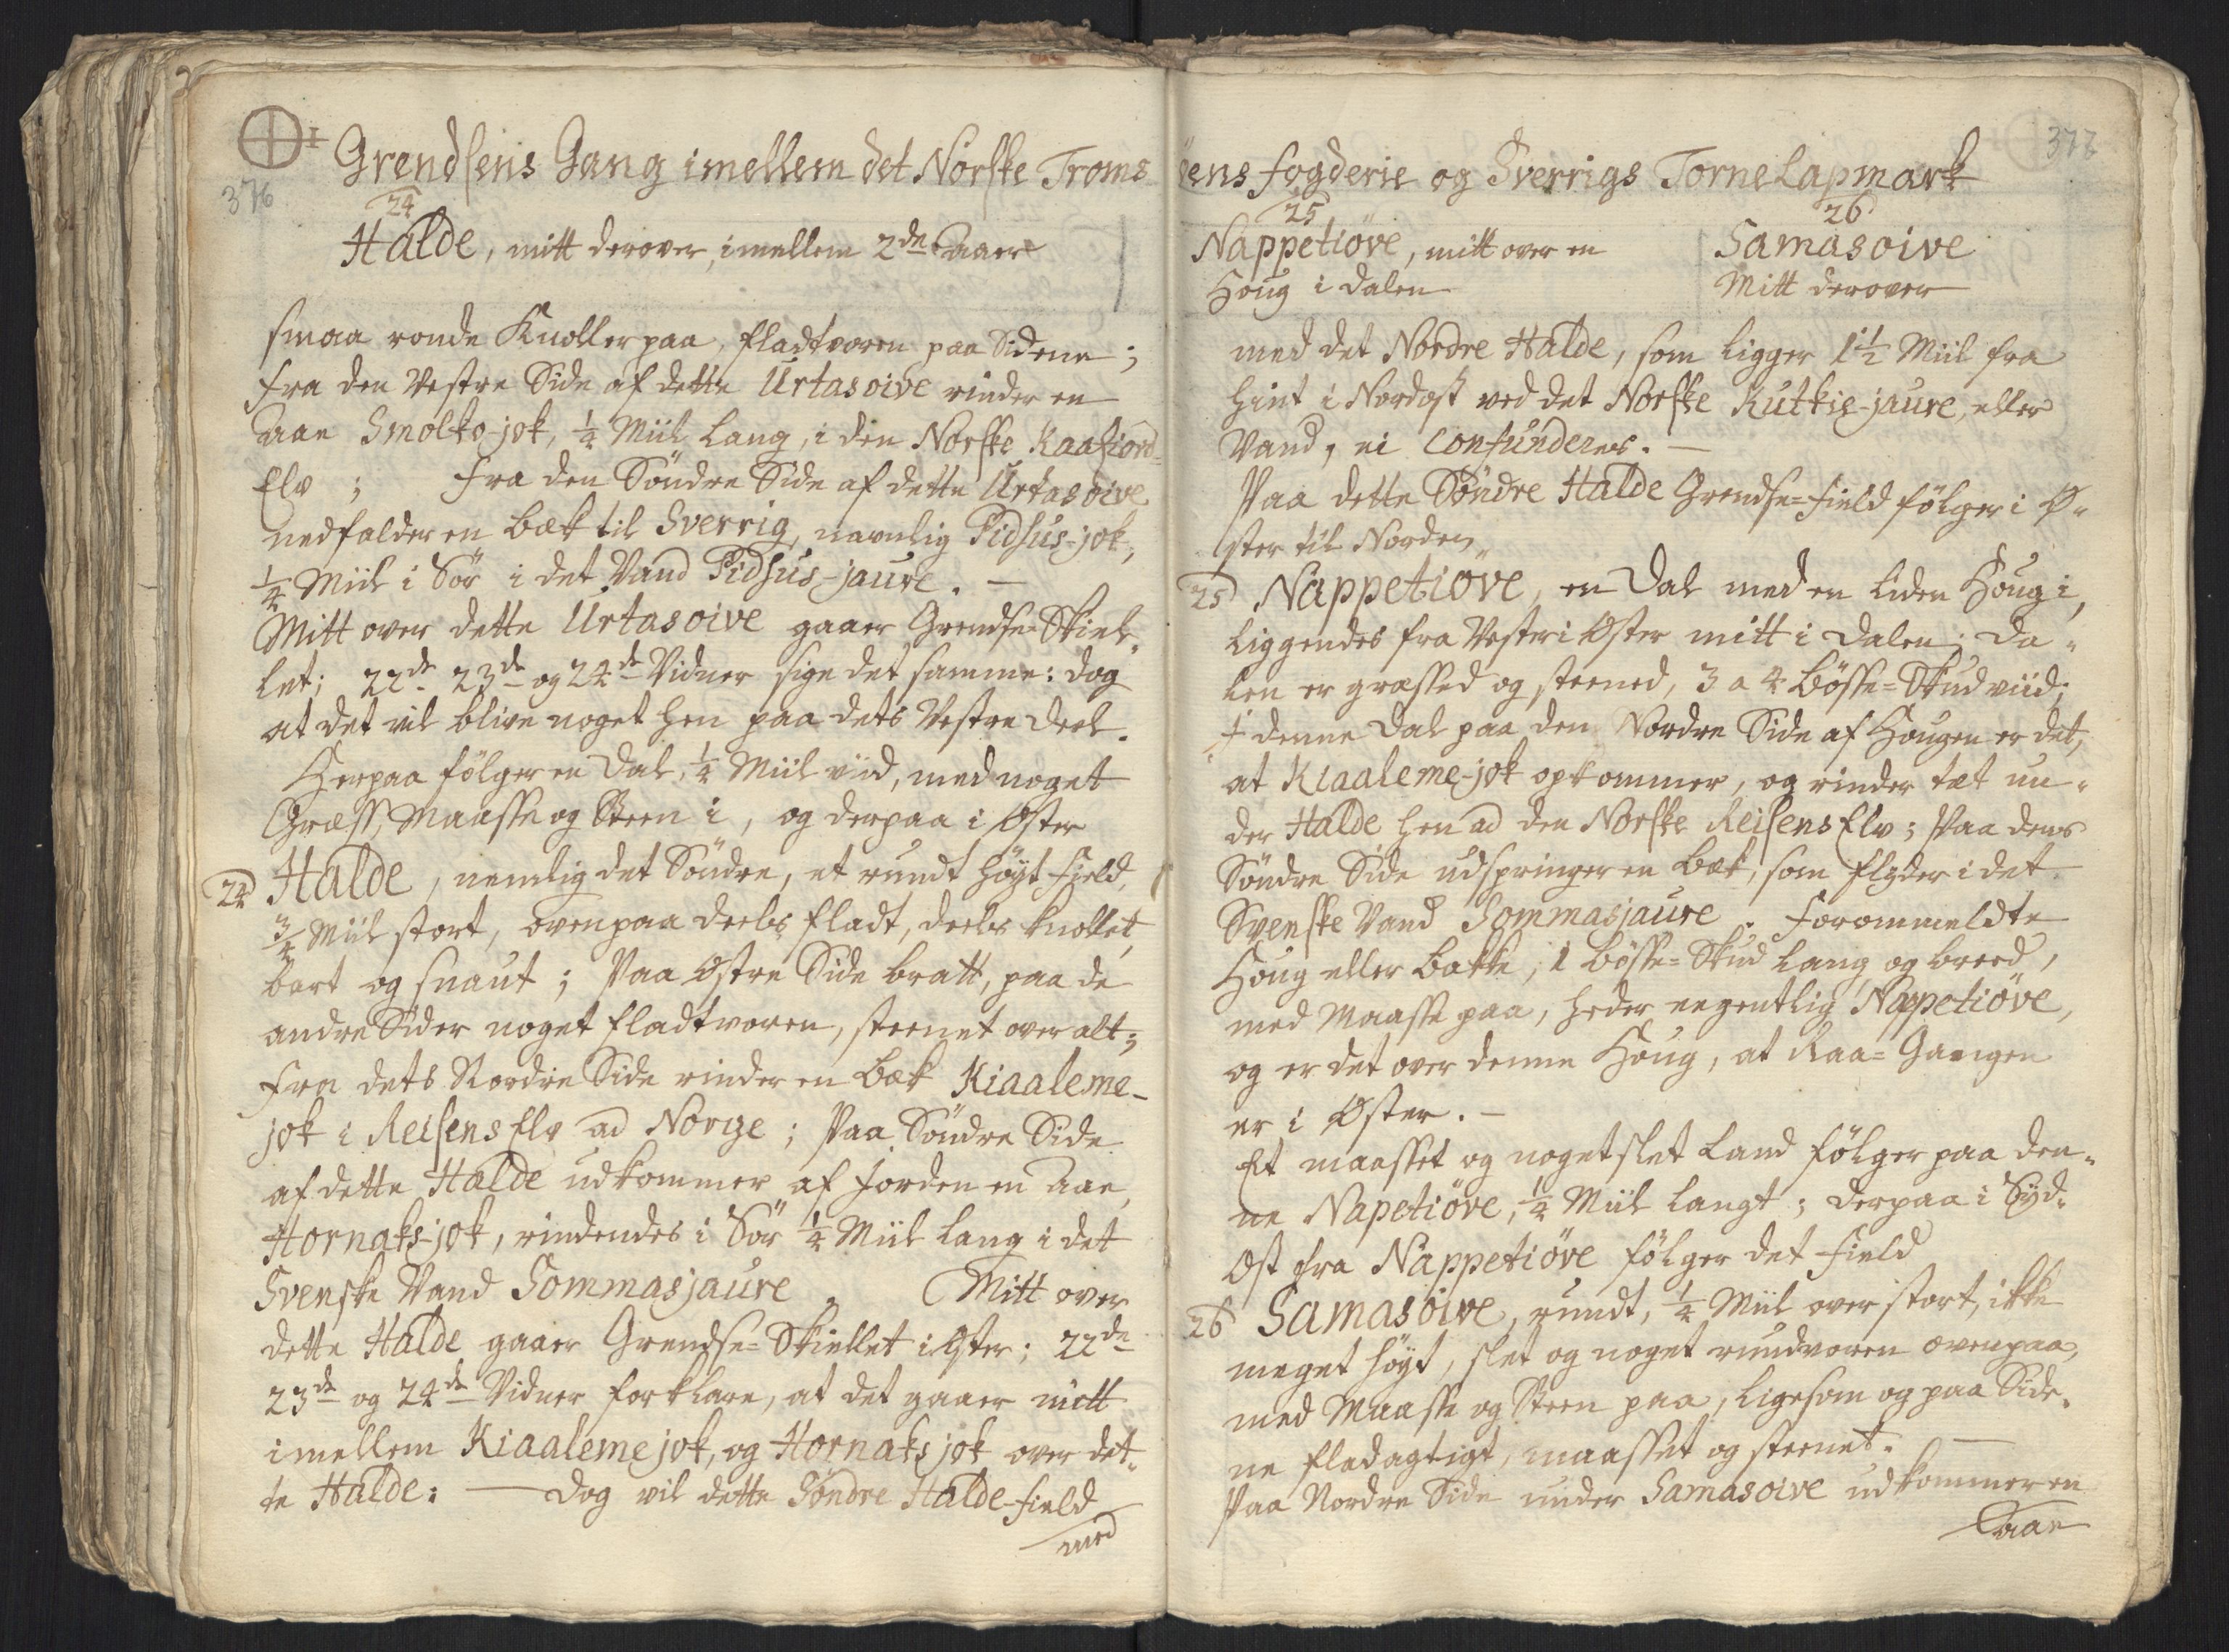 376
Grendsens Gang imellem det Norske Troms
24
Halde, mitt derover, imellem 2de Aaer
smaa ronde Knoller paa, fladtvoren paa Sidene;
fra den Vestre Side af dette Urtasoive rinder en
Aae Smolko-jok, 1/4 Miil lang, i den Norske Kaafiord-
Elv; fra den Søndre Side af dette Urtasoive
nedfalder en Bæk til Sverrig, navnlig Pidsus-jok,
1/4 Miil i Sør i det Vand Pidsus-jaure. —
Mitt over dette Urtasoive gaaer Grendse-Skiel-
let; 22de 23de og 24de Vidner sige det samme: dog
at det vil blive noget hen paa dets Vestre Deel.
Herpaa følger en Dal, 1/4 Miil viid, med noget
Græss, Maasse og Steen i, og derpaa i Øster
24 Halde, nemlig det Søndre, et rundt høyt Field,
3/4 Miil stort, ovenpaa deels fladt, deels knollet,
bart og snaut; Paa Østre Side bratt, paa de
andre Sider noget fladtvoren, steenet over alt;
fra dets Nordre Side rinder en Bæk Kiaaleme-
jok i Reisens Elv ad Norge; Paa Søndre Side
af dette Halde udkommer af Jorden en Aae,
Hornaks-jok, rindendes i Sør 1/4 Miil lang i det
Svenske Vand Sommasjaure. Mitt over
dette Halde gaaer Grendse-Skiellet i Øster; 22de
23de og 24de Vidner forklare, at det gaaer mitt
imellem Kiaalemejok, og Hornaksjok over det-
te Halde: — Dog vil dette Søndre Halde-Field
med
377
øens fogderie og Sverrigs Torne Lapmark
25
Nappetiøve, mitt over en
Houg i Dalen
26
Samasoive
Mitt derover
med det Nordre Halde, som ligger 1 1/2 Miil fra
hint i Nordost ved det Norske Kutkie-jaure, eller
Vand, ei confunderes. —
Paa dette Søndre Halde Grendse-Field følger i Ø-
ster til Norden
25 Nappetiöve, en Dal med en liden Houg i,
liggendes fra Vester i Øster mitt i Dalen; Da-
len er græssed og steened, 3 a 4 Bösse-Skud viid;
I denne Dal paa den Nordre Side af Hougen er det,
at Kiaaleme-jok opkommer, og rinder tæt un-
der Halde hen ad den Norske Reisens Elv; Paa dens
Søndre Side udspringer en Bæk, som flyder i det
Svenske Vand Sommasjaure. Forommeldte
Houg eller Bakke, 1 Bösse-Skud lang og breed,
med Maasse paa, heder eegentlig Nappetiöve,
og er det over denne Houg, at Raa-Gangen
er i Øster. —
Et maasset og noget slet Land følger paa den-
ne Napetiöve, 1/4 Miil langt; derpaa i Syd-
Ost fra Nappetiöve følger det Field
26 Samasoive, rundt, 1/4 Miil over stort, ikke
meget høyt, slet og noget rundvoren ovenpaa,
med Maasse og Steen paa, ligesom og paa Side-
ne fladagtigt, maasset og steenet. —
Paa Nordre Side under Samasoive udkommer en
Aae